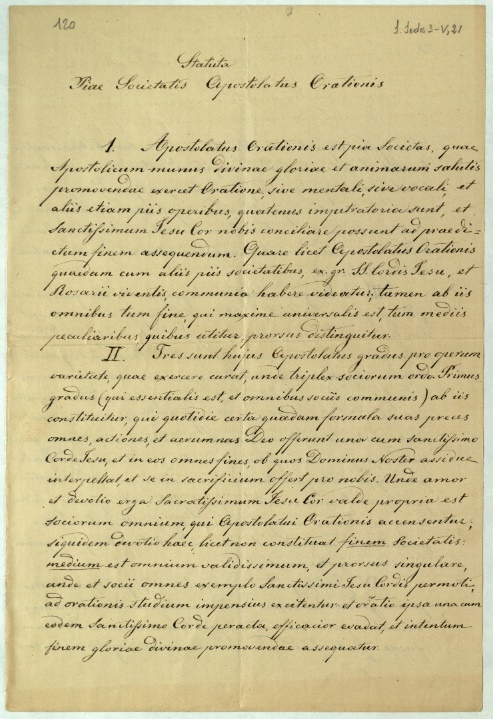 120
S. Sedes 3-V, 21
Statuta
Piae Societatis Apostolatus Orationis
I. Apostolatus Orationis est pia Societas, quae
Apostolicum munus divinae gloriae et animarum salutis
promovendae exercet Oratione, sive mentali, sive vocali et
aliis etiam piis operibus, quatenus impetratoria sunt, et
Sanctissimum Jesu Cor nobis conciliare possunt ad praedi=
ctum finem assequendum. Quare licet Apostolatus Orationis
quaedam cum aliis piis societatibus, ex. gr. SS. Cordis Jesu, et
Rosarii viventis, communia habere videatur, tamen ab iis
omnibus tum fine, qui maxime universalis est, tum mediis
peculiaribus, quibus utitur, prorsus distinguitur.
II. Tres sunt hujus Apostolatus gradus pro operum
varietate, quae exercere curat, unde triplex sociorum ordo. Primus
gradus (qui essentialis est, et omnibus sociis communis) ab iis
constituitur, qui quotidie certa quadam formula suas preces
omnes, actiones, et aerumnas Deo offerunt una cum Sanctissimo
Corde Jesu, et in eos omnes fines, ob quos Dominus Noster assidue
interpellat et se in sacrificium offert pro nobis. Unde amor
et devotio erga Sacratissimum Jesu Cor valde propria est
sociorum omnium, qui Apostolatui Orationis accensentur,
siquidem devotio haec, licet non constituat finem Societatis:
medium est omnium validissimum, et prorsus singulare,
unde et socii omnes exemplo Sanctissimi Jesu Cordis permoti,
ad orationis studium impensius excitentur et oratio ipsa una cum
eodem Sanctissimo Corde peracta, efficacior evadat, et intentum
finem gloriae divinae promovendae assequatur.